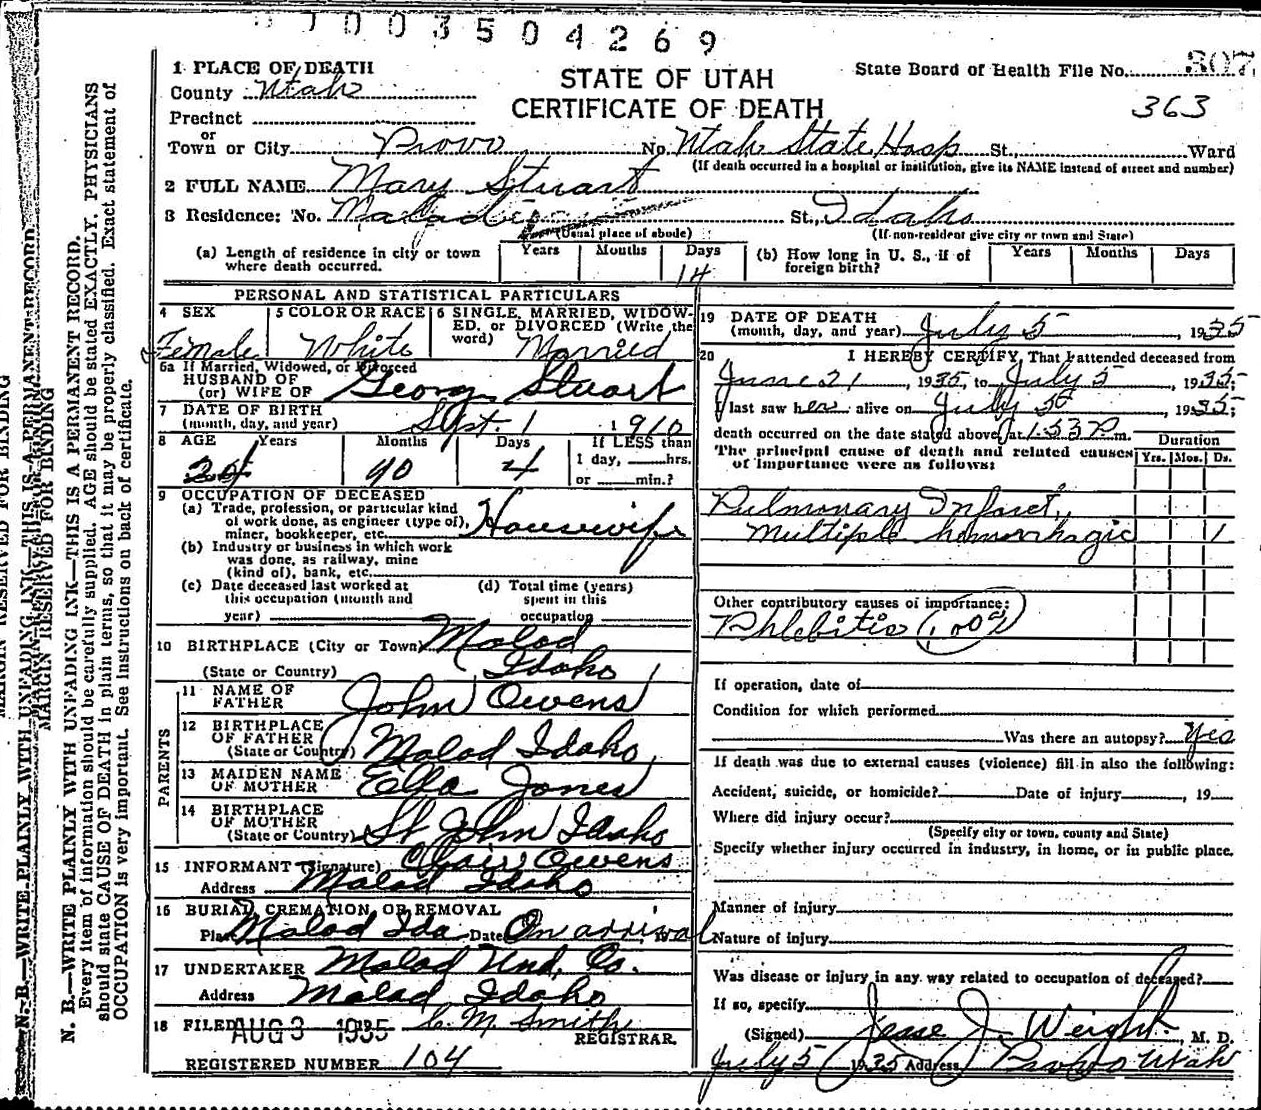 0 7 0 0 3 5 0 4 2 6 9
1 PLACE OF DEATH
STATE OF UTAH
CERTIFICATE OF DEATH
State Board of Health File No. 307
363
County Utah
Precinct
or
Town or City Provo No. Utah State Hosp St., Ward
(If death occurred in a hospital or institution, give its NAME instead of street and number)
2 FULL NAME Mary Stuart
3 Residence: No. Malad St., Idaho
(Usual place of abode) (If non-resident give city or town and State)
(a) Length of residence in city or town where death occurred. Years Months Days 14
(b) How long in U. S., if of foreign birth? Years Months Days
PERSONAL AND STATISTICAL PARTICULARS
4 SEX Female
5 COLOR OR RACE White
6 SINGLE, MARRIED, WIDOW-
ED, or DIVORCED (Write the
word) Married
6a If Married, Widowed, or Divorced
HUSBAND OF
(or) WIFE OF George Stuart
7 DATE OF BIRTH
(month, day, and year) Sept. 1 1910
8 AGE Years Months Days If LESS than
24 10 4 1 day, hrs.
or min.?
9 OCCUPATION OF DECEASED
(a) Trade, profession, or particular kind
of work done, as engineer (type of),
miner, bookkeeper, etc. Housewife
(b) Industry or business in which work
was done, as railway, mine
(kind of), bank, etc.
(c) Date deceased last worked at
this occupation (month and
year)
(d) Total time (years)
spent in this
occupation
10 BIRTHPLACE (City or Town) Malad
(State or Country) Idaho
PARENTS
11 NAME OF
FATHER John Owens
12 BIRTHPLACE
OF FATHER
(State or Country) Malad Idaho
13 MAIDEN NAME
OF MOTHER Ella Jones
14 BIRTHPLACE
OF MOTHER
(State or Country) St John Idaho
15 INFORMANT (Signature) Owens
Address Malad Idaho
16 BURIAL, CREMATION, OR REMOVAL
Place Malad Ida Date On arrival, 19
17 UNDERTAKER Malad Und. Co.
Address Malad Idaho
18 FILED AUG 3 1935 C. M. Smith
REGISTRAR
REGISTERED NUMBER 104
19 DATE OF DEATH
(month, day, and year) July 5 1935
20 I HEREBY CERTIFY, That I attended deceased from
June 21, 1935, to July 5, 1935;
I last saw her alive on July 5, 1935;
death occurred on the date stated above, at 1:53 P. m.
The principal cause of death and related causes
of importance were as follows:
Duration
Yrs. Mos. Ds.
Pulmonary Infarct,
Multiple hemorrhagic 1
Other contributory causes of importance:
Phlebitis
If operation, date of
Condition for which performed
Was there an autopsy? Yes
If death was due to external causes (violence) fill in also the following:
Accident, suicide, or homicide? Date of injury, 19
Where did injury occur?
(Specify city or town, county and State)
Specify whether injury occurred in industry, in home, or in public place.
Manner of injury
Nature of injury
Was disease or injury in any way related to occupation of deceased?
If so, specify
(Signed) Jesse J. Weight, M. D.
July 5 1935 Address Provo Utah
MARGIN RESERVED FOR BINDING
N. B.—WRITE PLAINLY WITH UNFADING INK—THIS IS A PERMANENT RECORD
MARGIN RESERVED FOR BINDING
N. B.—WRITE PLAINLY WITH UNFADING INK—THIS IS A PERMANENT RECORD.
Every item of information should be carefully supplied. AGE should be stated EXACTLY. PHYSICIANS
should state CAUSE OF DEATH in plain terms, so that it may be properly classified. Exact statement of
OCCUPATION is very important. See instructions on back of certificate.